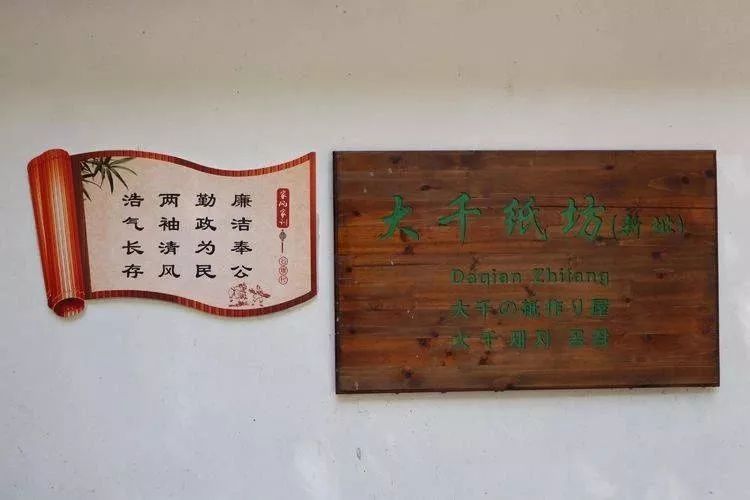 家风家训
廉洁奉公
勤政为民
两袖清风
浩气长存
大千纸坊(新址)
Daqian Zhifang
大千の紙作り屋
大千